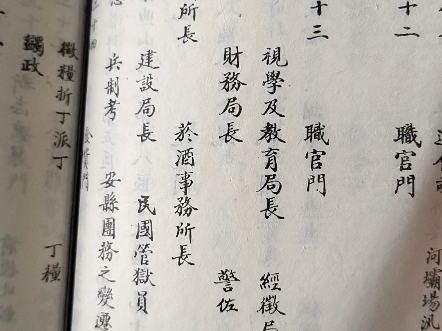 河壩場汛
十二 職官門
十三 職官門
視學及教育局長 經徵局
財務局長 警佐
所長 菸酒事務所長
建設局長 民國管獄員
兵制考 安縣團務之變遷
徵糧折丁派丁 丁糧
蠲政